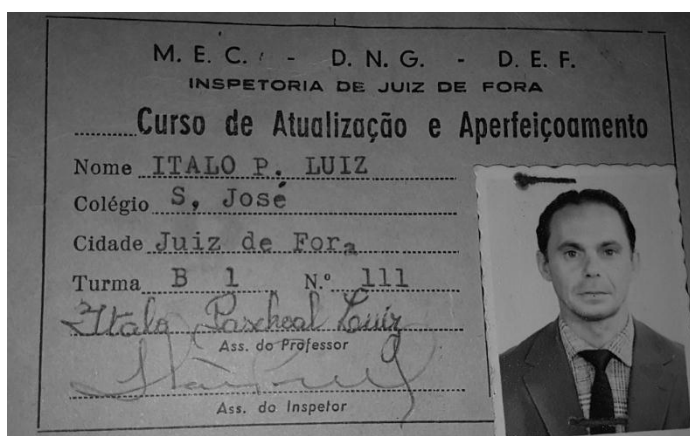 M. E. C. - D. N. G. - D. E. F.
INSPETORIA DE JUIZ DE FORA
Curso de Atualização e Aperfeiçoamento
Nome ITALO P. LUIZ
Colégio S, José
Cidade Juiz de Fora
Turma B 1 N.º 111
Italo Pascheal Luiz
Ass. do Professor
Ass. do Inspetor